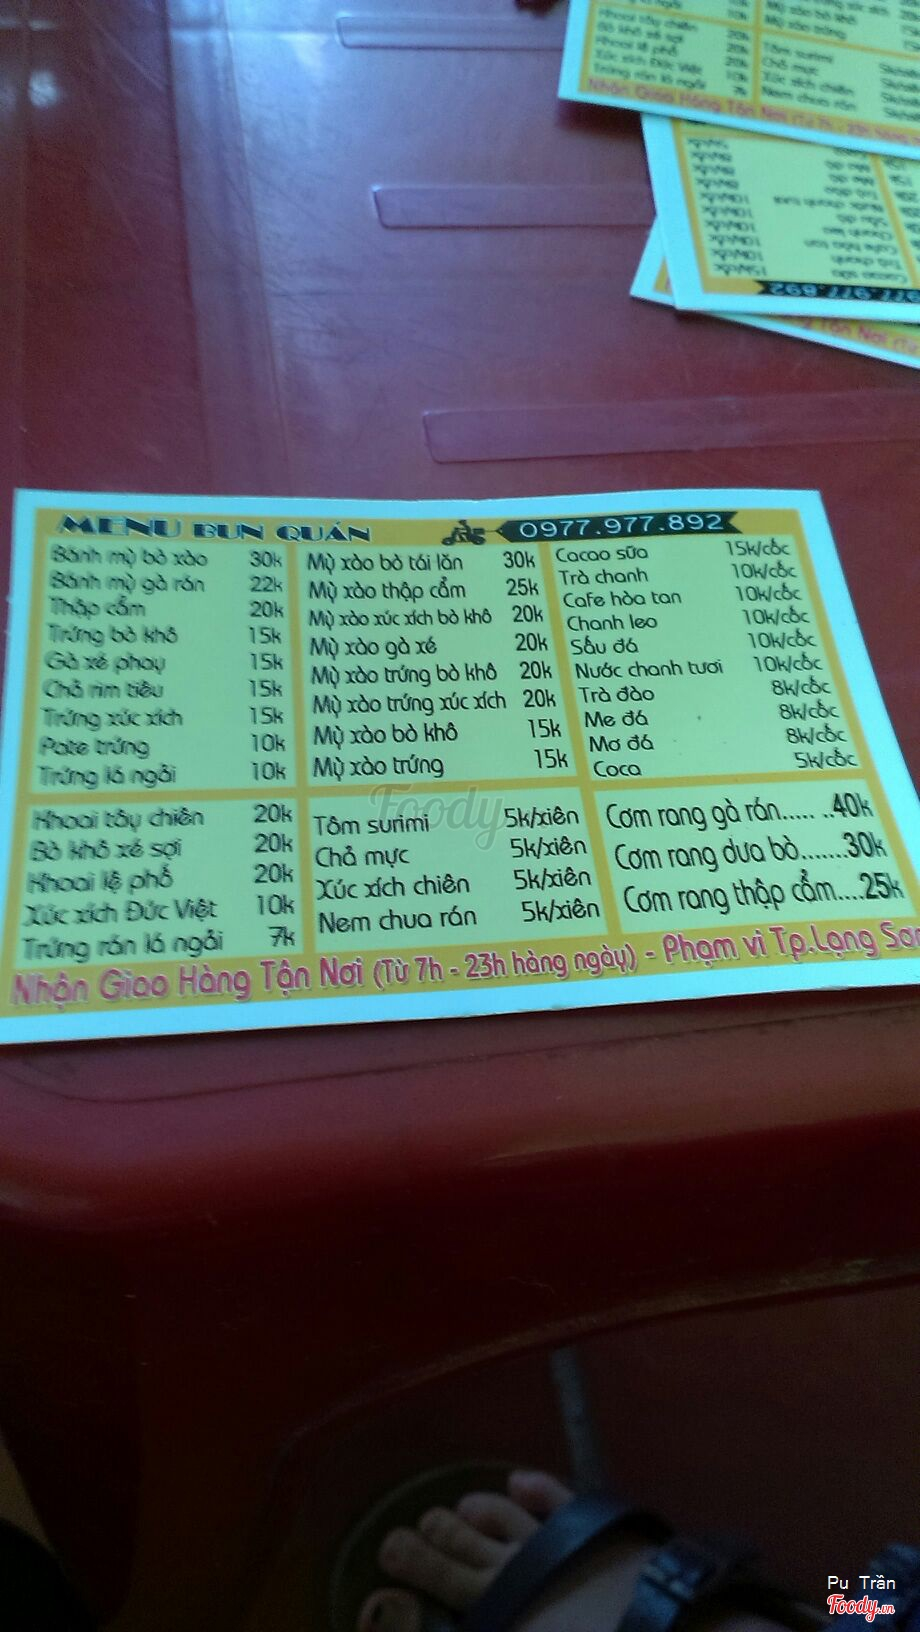 MENU BUN QUÁN 0977.977.892
Bánh mỳ bò xào 30k
Bánh mỳ gà rán 22k
Thập cẩm 20k
Trứng bò khô 15k
Gà xé phay 15k
Chả rim tiêu 15k
Trứng xúc xích 15k
Pate trứng 10k
Trứng lá ngải 10k
Mỳ xào bò tái lăn 30k
Mỳ xào thập cẩm 25k
Mỳ xào xúc xích bò khô 20k
Mỳ xào gà xé 20k
Mỳ xào trứng bò khô 20k
Mỳ xào trứng xúc xích 20k
Mỳ xào bò khô 15k
Mỳ xào trứng 15k
Cacao sữa 15k/cốc
Trà chanh 10k/cốc
Cafe hòa tan 10k/cốc
Chanh leo 10k/cốc
Sấu đá 10k/cốc
Nước chanh tươi 10k/cốc
Trà đào 8k/cốc
Me đá 8k/cốc
Mơ đá 8k/cốc
Coca 5k/cốc
Khoai tây chiên 20k
Bò khô xé sợi 20k
Khoai lệ phố 20k
Xúc xích Đức Việt 10k
Trứng rán lá ngải 7k
Tôm surimi 5k/xiên
Chả mực 5k/xiên
Xúc xích chiên 5k/xiên
Nem chua rán 5k/xiên
Cơm rang gà rán..... ..40k
Cơm rang dưa bò.......30k
Cơm rang thập cẩm....25k
Nhận Giao Hàng Tận Nơi (Từ 7h - 23h hàng ngày) - Phạm vi Tp.Lạng Sơn
Foody
Pu Trần
Foody.vn